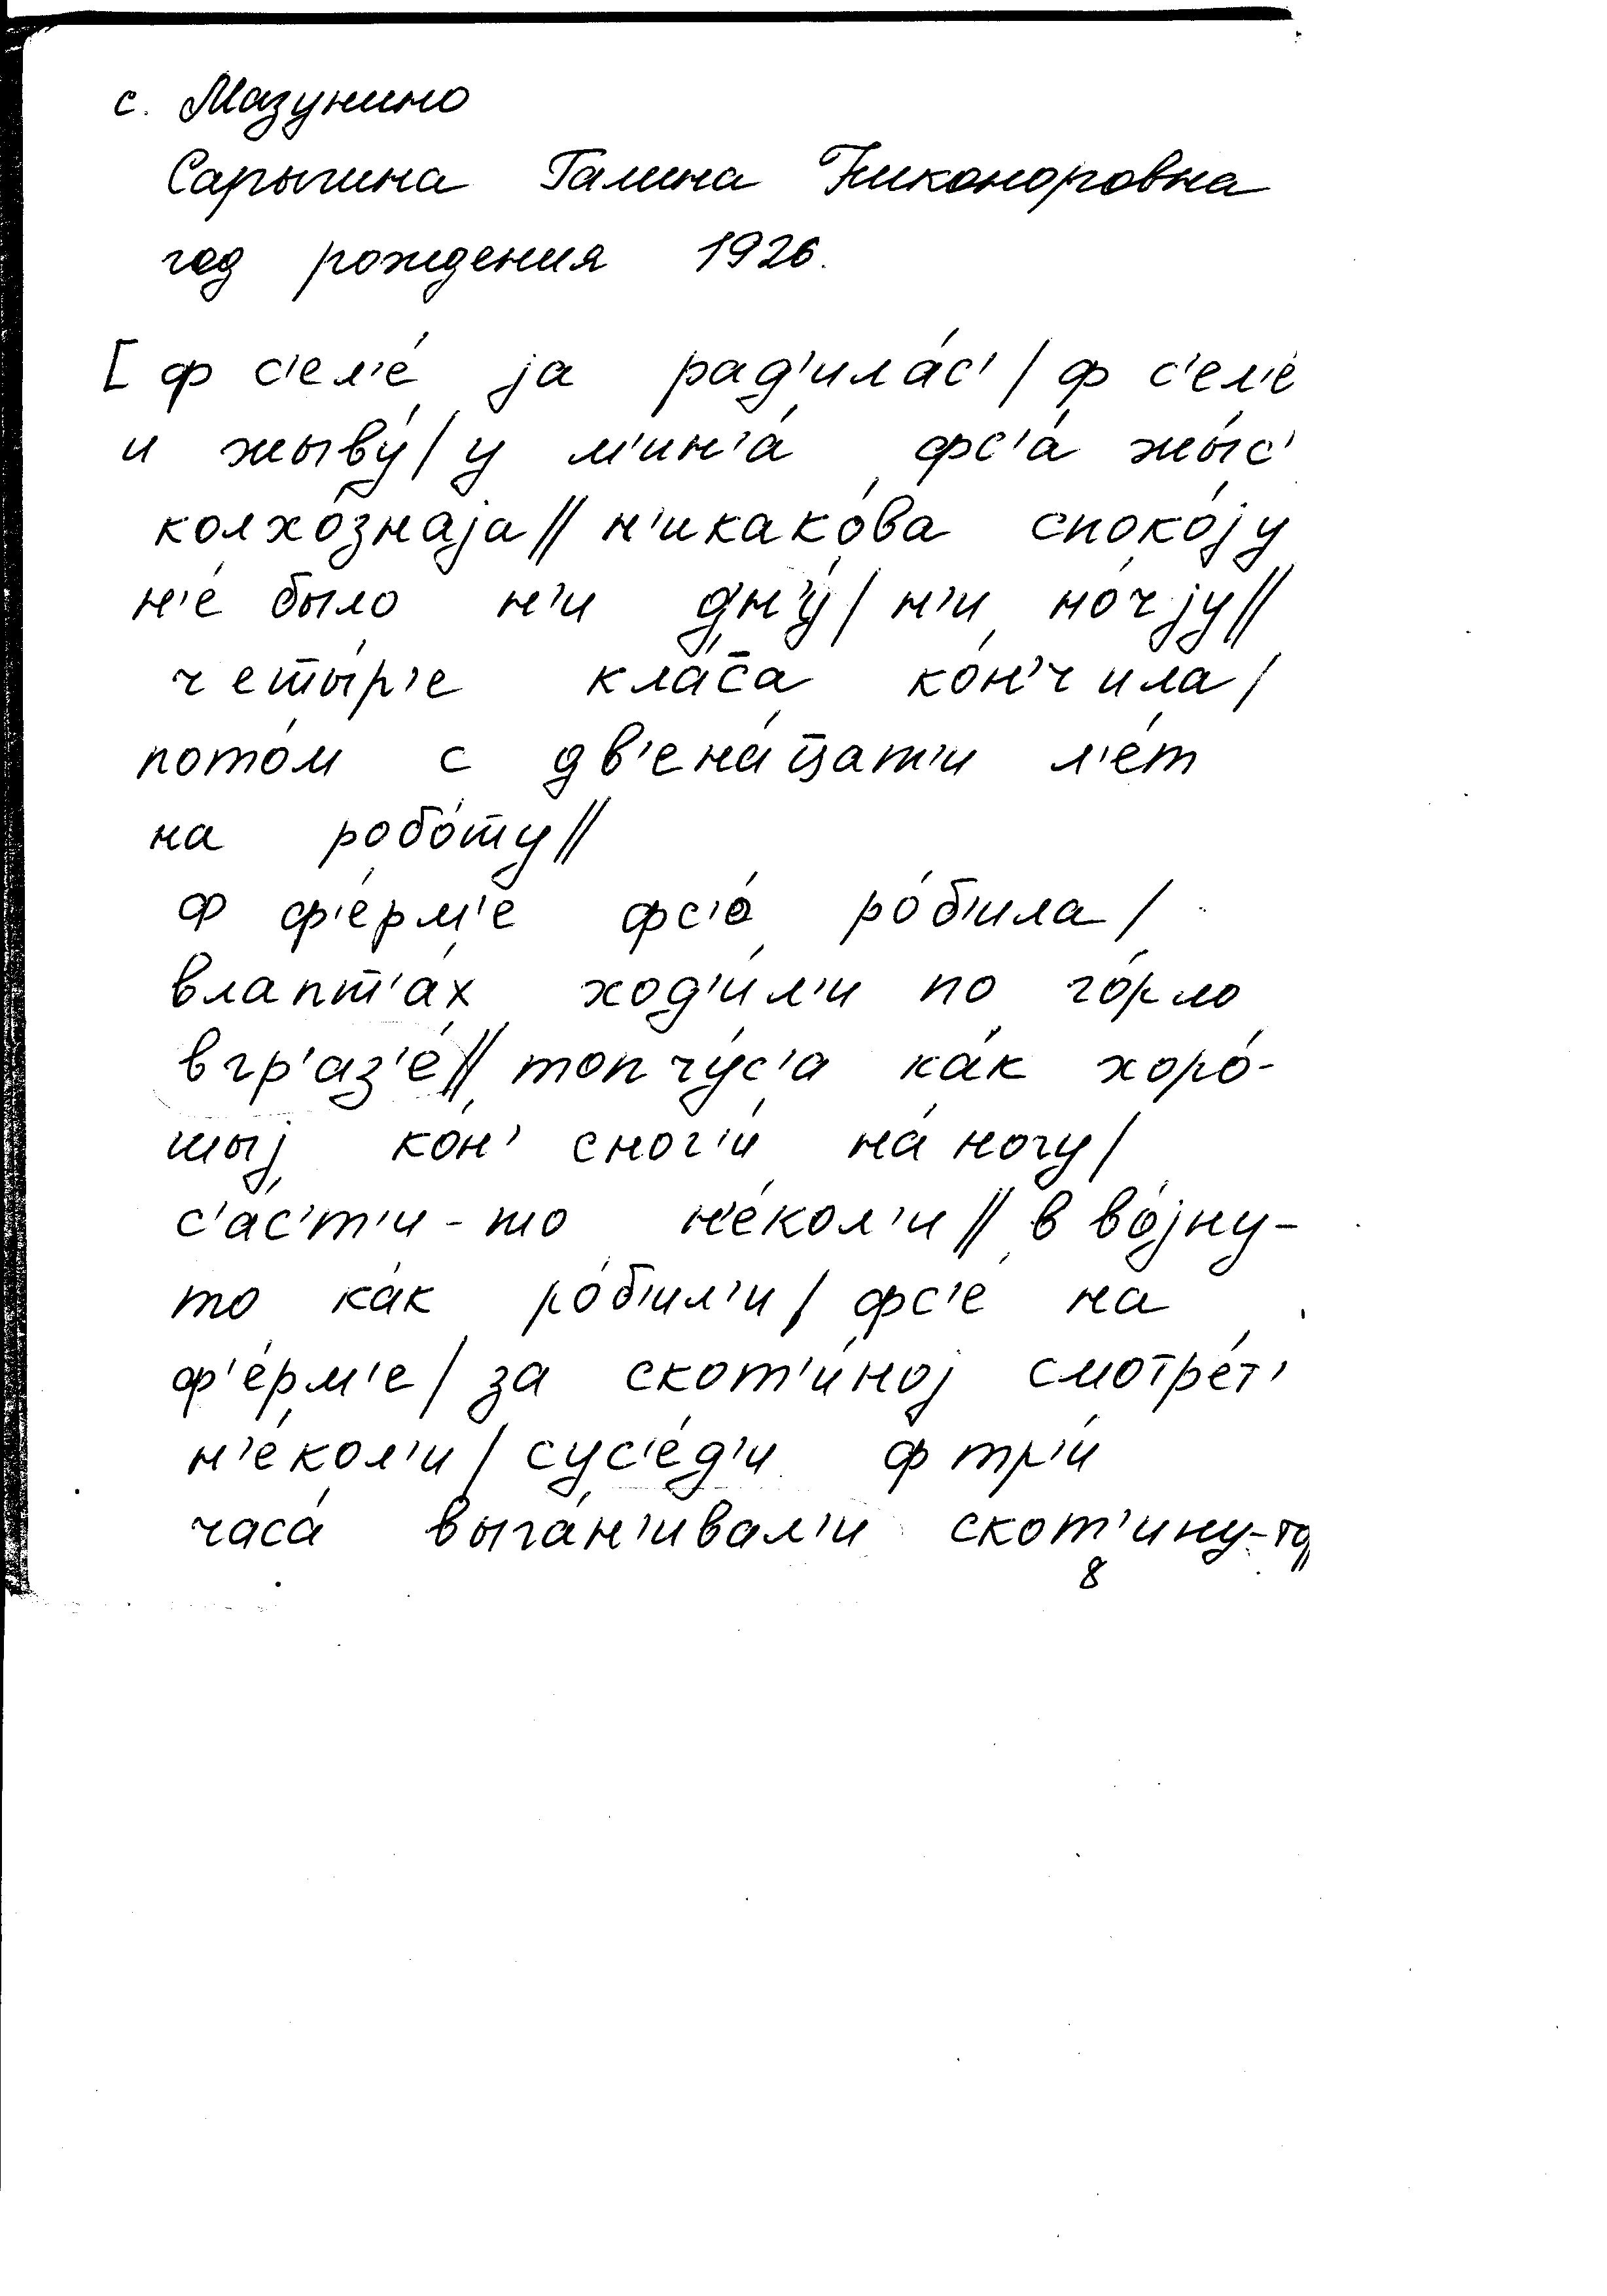 с. Мазунино
Сарычина Галина Никоноровна
год рождения 1926.
[ ф с'ел'е́ jа рад'ила́с' / ф с'ел'е́
и жыву́ / у м'ин'а́ фс'а́ жы́с'
колхо́знаjа // н'икако́ва споко́jу
н'е́ было н'и дн'у́ / н'и но́чjу //
четы́р'е кла́с̄а ко́н'чила /
пото́м с дв'ена́ц̄ат'и л'е́т
на робо́ту //
Ф ф'е́рм'е фс'о́ ро́б'ила /
влапт'а́х ход'и́л'и по го́рло
вгр'аз'е́ // топчу́с'а ка́к хоро́-
шыj ко́н' сног'и́ на́ ногу /
с'а́с'т'и-то н'е́кол'и // в во́jну-
то ка́к ро́б'ил'и / фс'е́ на
ф'е́рм'е / за скот'и́ноj смотре́т'
н'е́кол'и / сус'е́д'и ф тр'и́
часа́ выга́н'ивал'и скот'ину-то //
8